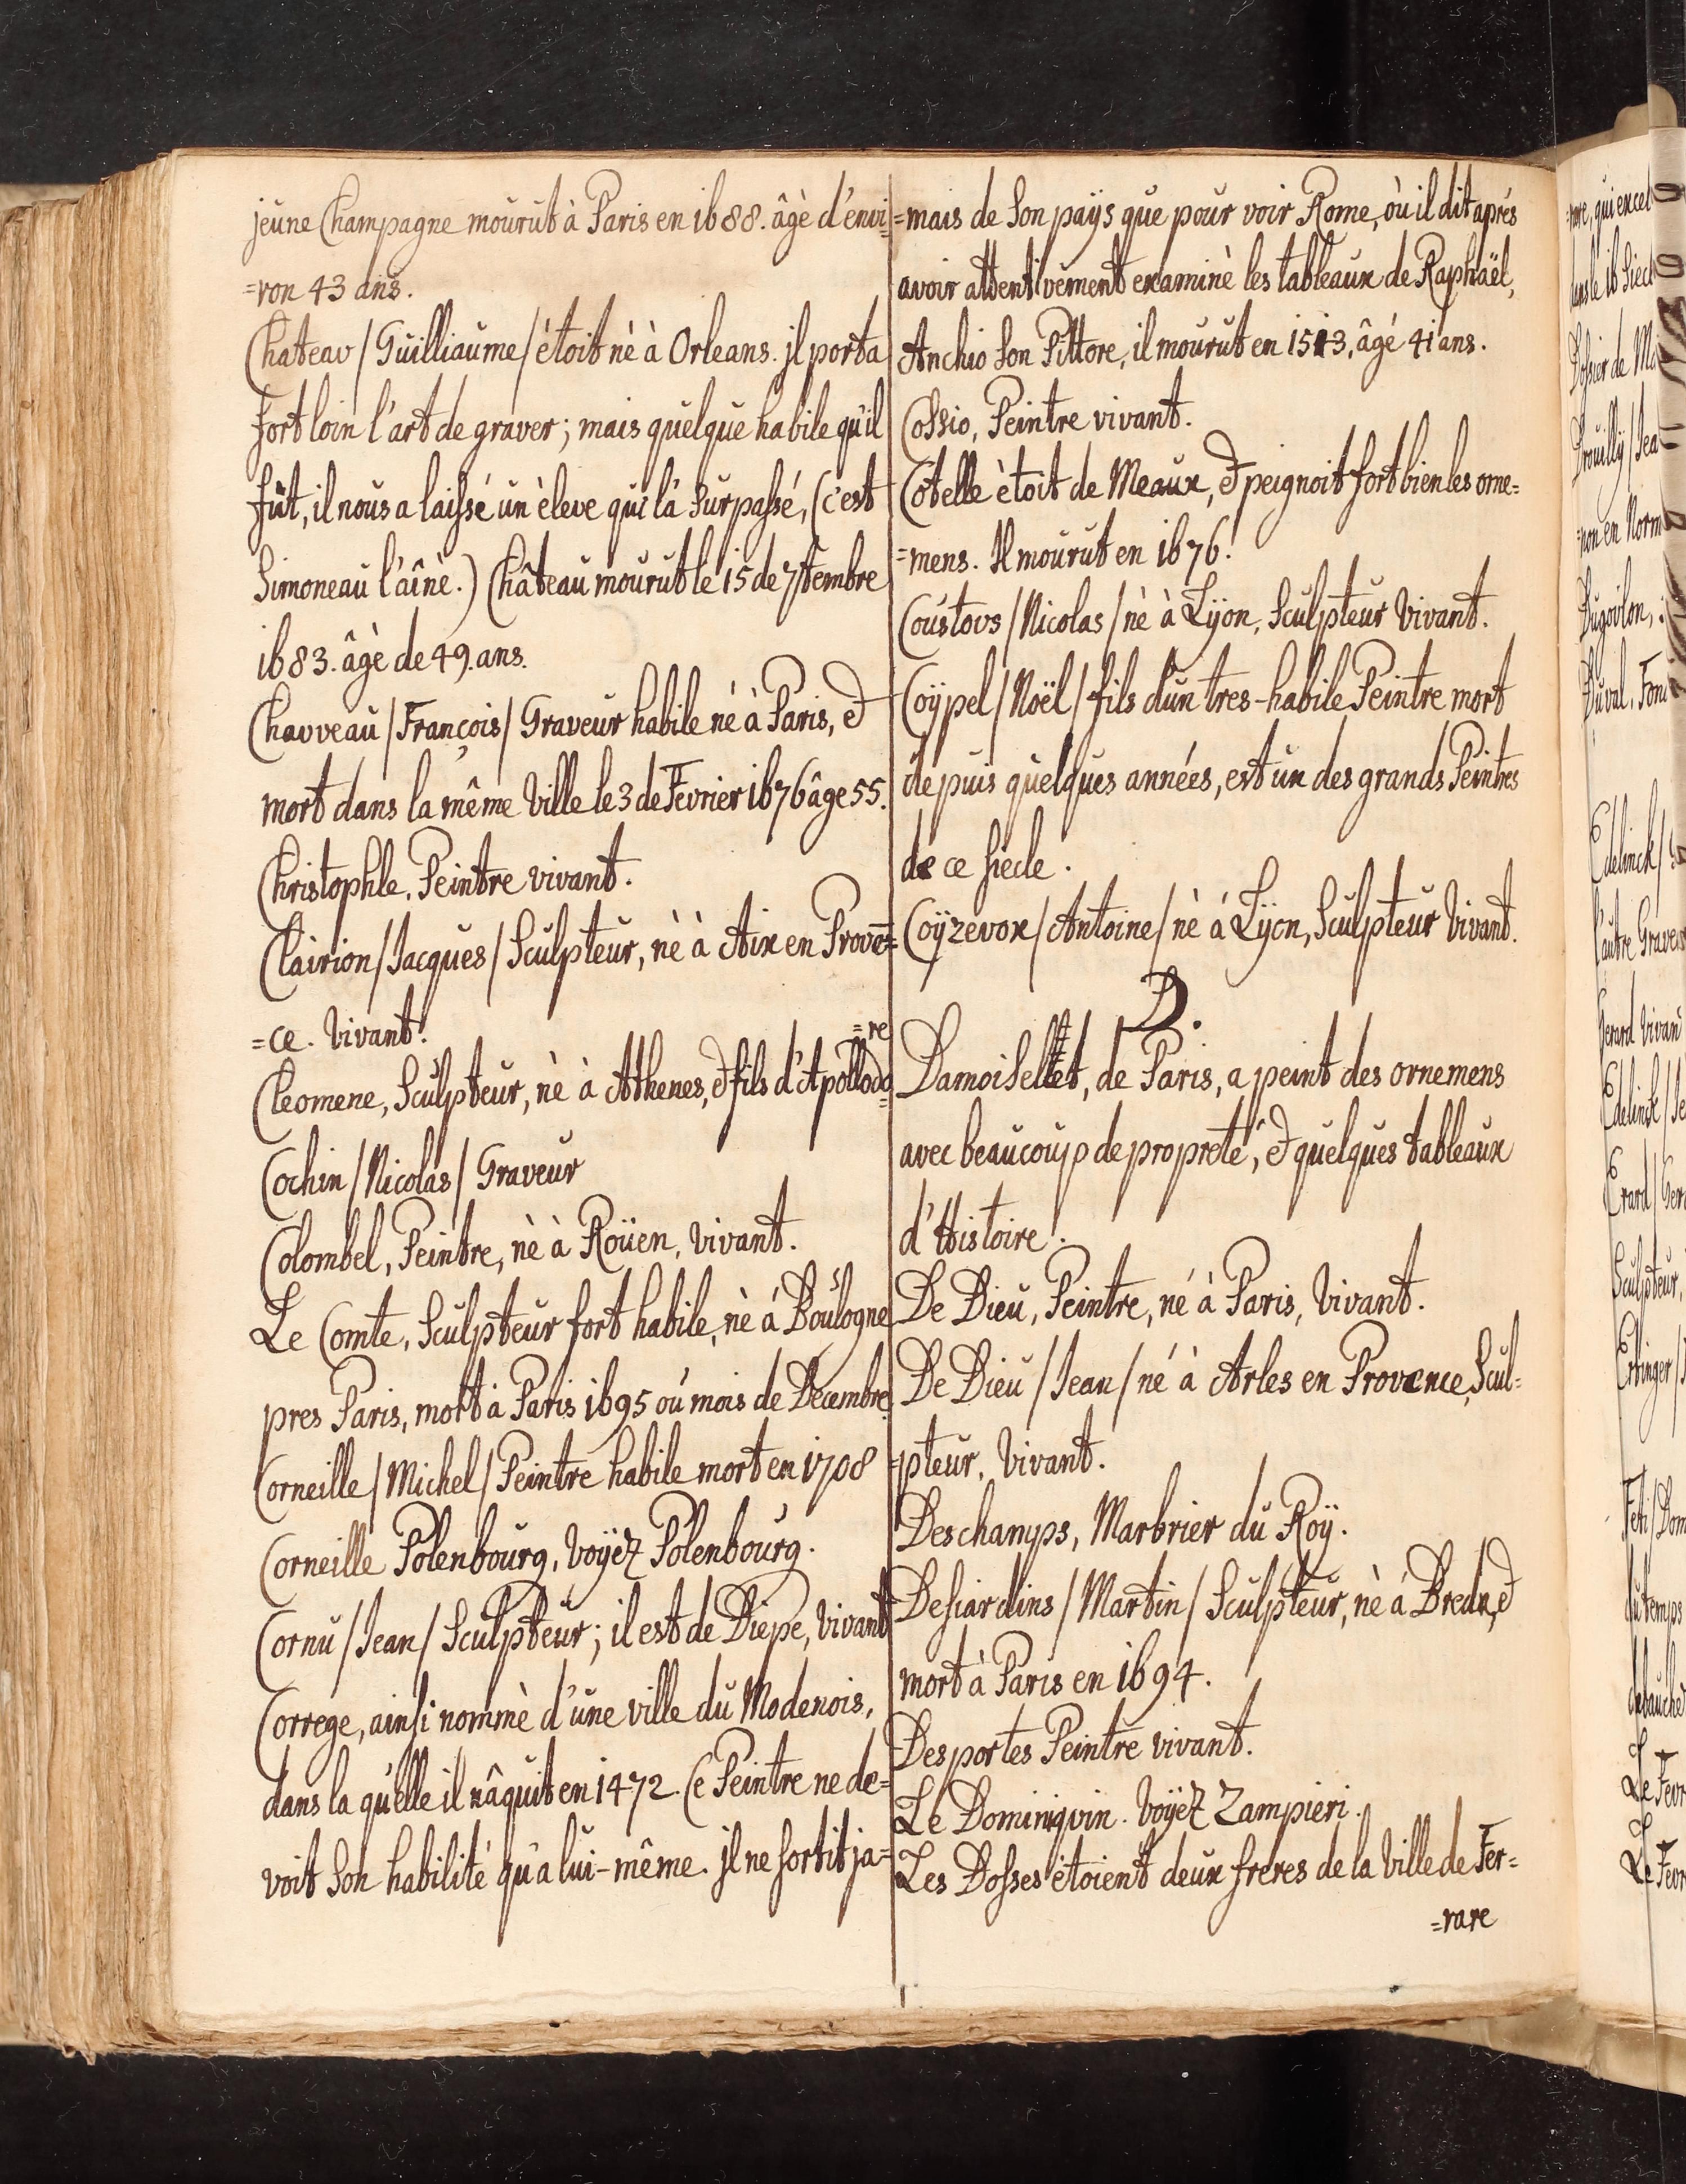 jeune Champagne mourut à Paris en 1688. âgè d'envi=
=ron 43 ans.
Chateau / Guilliaume / ètoit nè à Orleans. jl porta
fort loin l'art de graver; mais quelque habile qu'il
fût, il nous a laissé un èleve qui la surpassé, (c'est
Simoneau l'aînè.) Château mourut le 15 de 7tembre
1683. âgè de 49. ans.
Chauveau / François / Graveur habile né à Paris, et
mort dans la même Ville le 3 de Fevrier 1676 âge 55.
Christophle. Peintre vivant.
Clairion / Jacques / Sculpteur, nè à Aix en Proven=
=ce. Vivant.
Cleomene, Sculpteur, nè à Athenes, et fils d'Apollodo=
=re
Cochin / Nicolas / Graveur
Colombel, Peintre, nè à Roüen, vivant.
Le Comte, Sculpteur fort habile, nè á Boulogne
pres Paris, mort a Paris 1695 ou mois de Decembre.
Corneille / Michel / Peintre habile mort en 1708
Corneille Polenbourg, Voÿez Polenbourg.
Cornu / Jean / Sculpteur; il est de Diepe, Vivant
Correge, ainsi nommè d'une ville du Modenois,
dans la quelle il nâquit en 1472. Ce Peintre ne de=
voit Son habilité qu'a lui-même. jl ne sortit ja=
=mais de Son paÿs que pour voir Rome, où il dit aprés
avoir attentivement examinè les tableaux de Raphaël,
Anchio Son Pittore, il mourut en 1513, âgé 41 ans.
Cossio, Peintre vivant.
Cotelle ètoit de Meaux, et peignoit fort bien les orne=
=mens. Il mourut en 1676.
Coustous / Nicolas / nè à Lÿon, Sculpteur Vivant.
Coÿpel / Noël / fils d'un tres-habile Peintre mort
depuis quelques années, est un des grands Peintres
de ce siecle.
Coÿzevox / Antoine / nè á Lÿon, Sculpteur Vivant.
D.
Damoisellet, de Paris, a peint des ornemens
avec beaucoup de propreté, et quelques tableaux
d'Histoire.
De Dieu, Peintre, né à Paris, Vivant.
De Dieu / Jean / né à Arles en Provence, Scul=
=pteur, Vivant.
Deschamps, Marbrier du Roÿ.
Desiardins / Martin / Sculpteur, nè á Breda, et
mort à Paris en 1694.
Desportes Peintre vivant.
Le Dominiquin. Voÿez Zampieri.
Les Dosses étoient deux freres de la Ville de Fer=
=rare